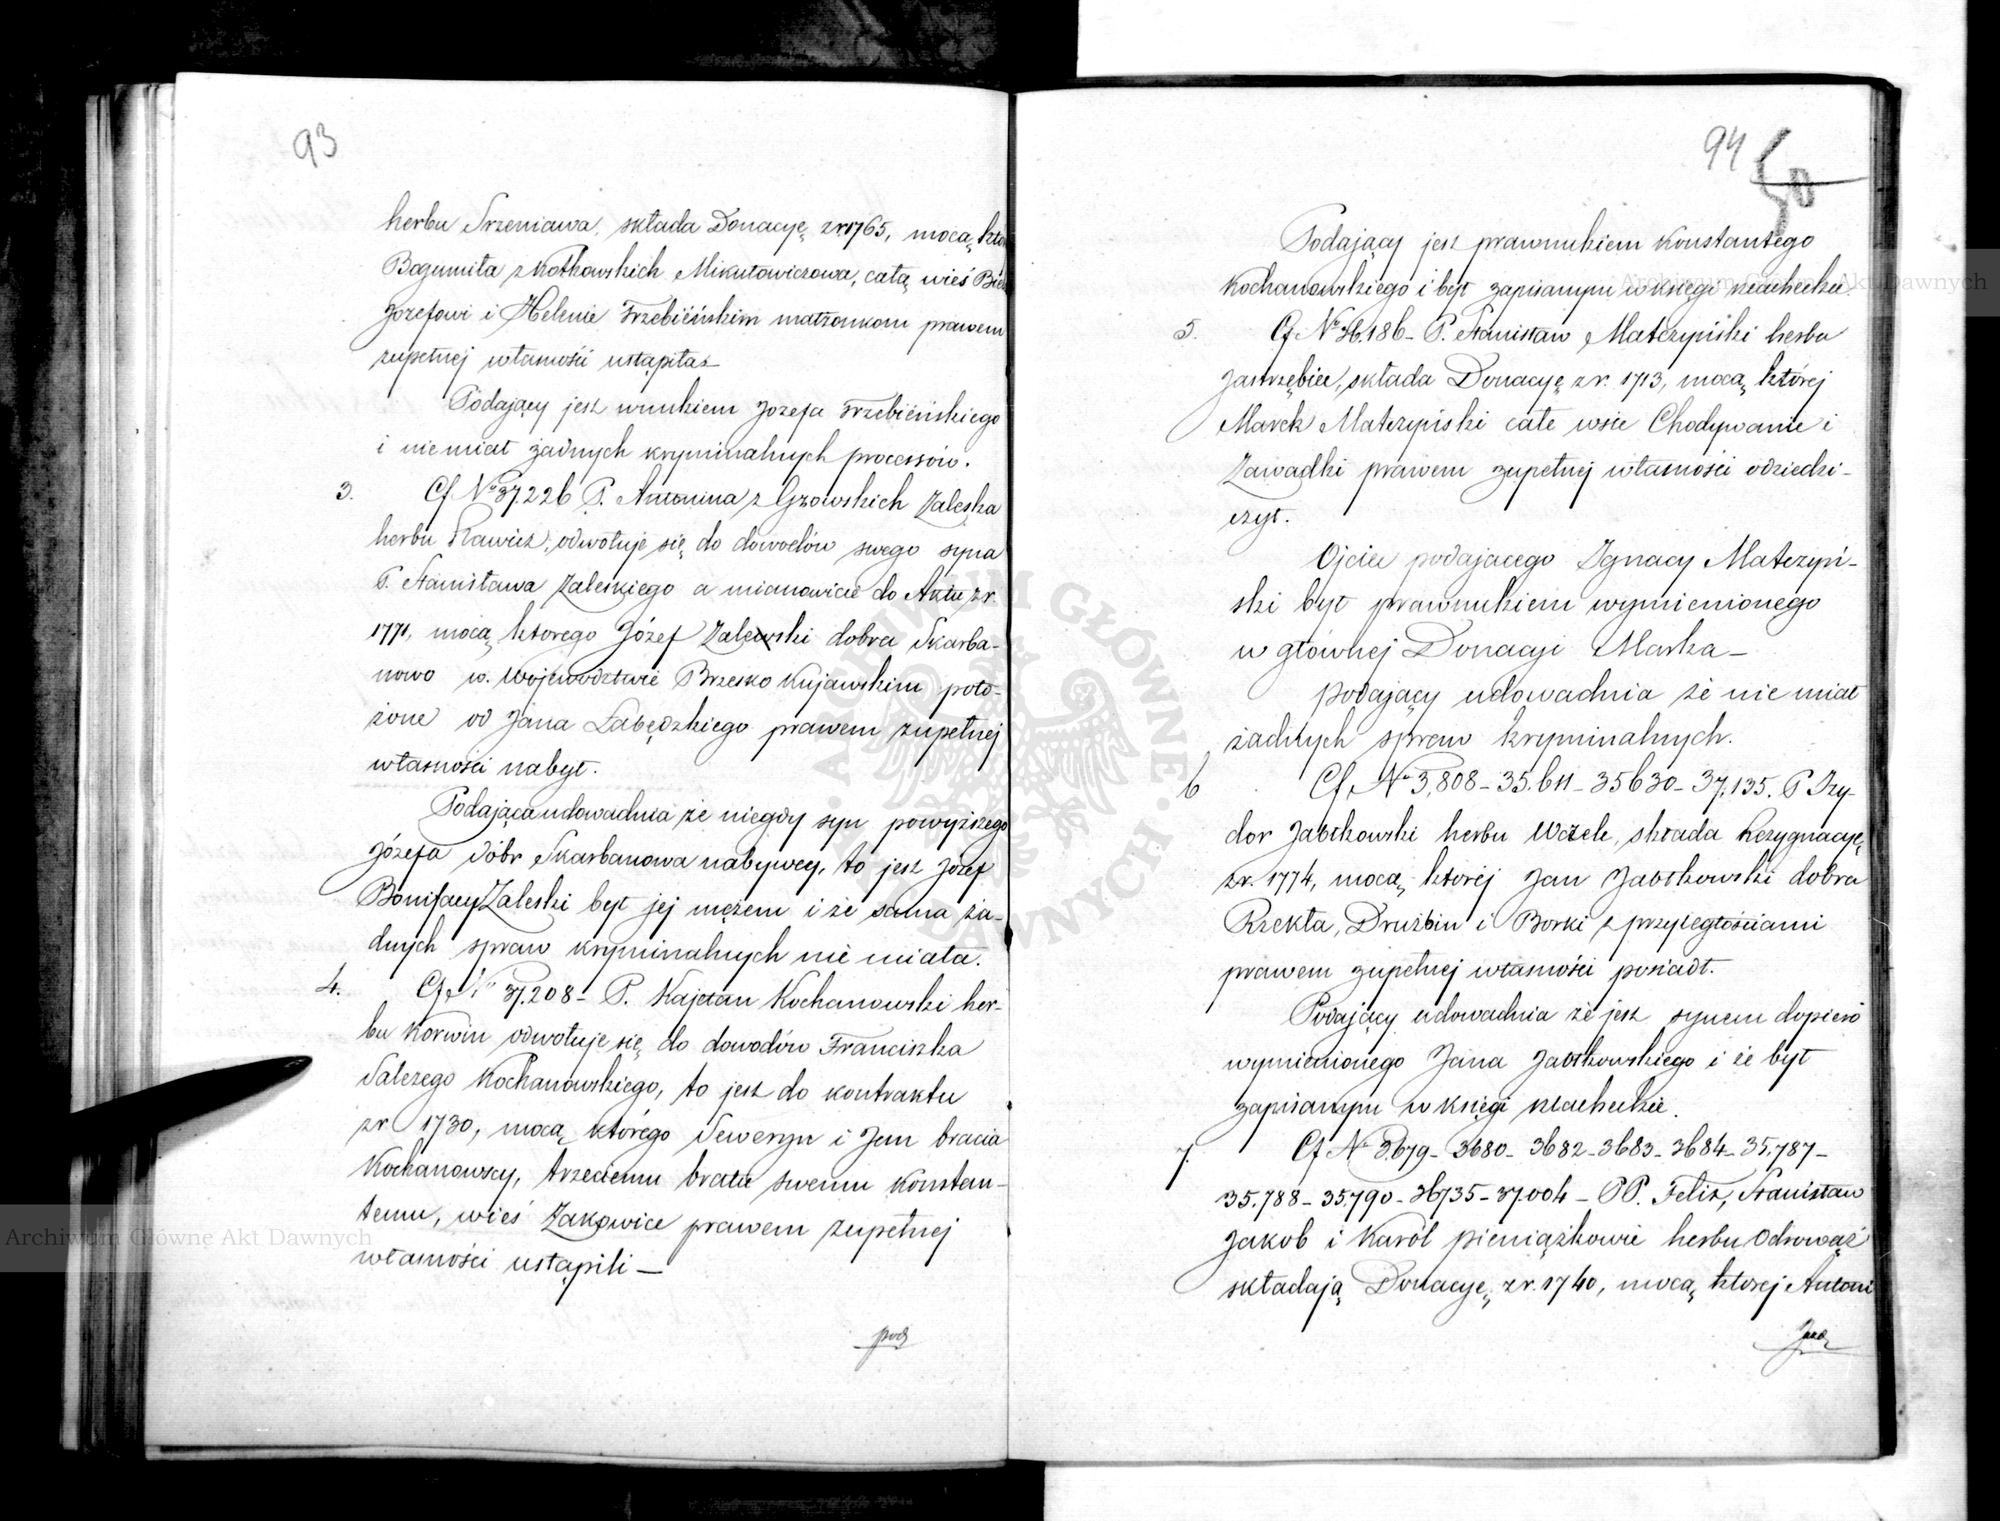 93
herbu Srzeniawa, składa Donacyę z r. 1765, mocą
Bogumiła z Kotkowskich Mikułowiczowa, całą wieś
Józefowi i Helenie Trzebińskim małżonkom prawem
zupełnej własności ustąpiła
Podający jest wnukiem Józefa Trzebińskiego
i nie miał żadnych kryminalnych processów.
3. Cf No 37.226 P. Antonina z Gzowskich Zaleska
herbu Rawicz, odwołuje się do dowodów swego syna
P. Stanisława Zaleskiego a mianowicie do Aktu z r.
1771, mocą ktorego Józef Zalewski dobra Skarba-
nowo w. Województwie Brzesko Kujawskim poło-
żone od Jana Łabędzkiego prawem zupełnej
własności nabył.
Podająca udowadnia że niegdy syn powyższego
Józefa dóbr Skarbanowa nabywcy, to jest Józef
Bonifacy Zaleski był jej mężem i że sama ża-
dnych spraw kryminalnych nie miała.
4. Cf No 37.208 - P. Kajetan Kochanowski her-
bu Korwin odwołuje się do dowodów Franciszka
Salezego Kochanowskiego, to jest do kontraktu
z r. 1730, mocą którego Seweryn i Jan bracia
Kochanowscy, trzeciemu bratu swemu Konstan-
temu, wieś Zakowice prawem zupełnej
własności ustąpili -
pod
94
50
Podający jest prawnukiem Konstantego
Kochanowskiego i był zapisanym w księgi szlacheckie.
5. Cf No 36.186 - P. Stanisław Matczyński herbu
Jastrzębiec, składa Donacyę z r. 1713, mocą której
Marek Matczyński całe wsie Chodywanie i
Zawadki prawem zupełnej własności odziedzi-
czył.
Ojciec podającego Ignacy Matczyń-
ski był prawnukiem wymienionego
w głównej Donacyi Marka -
Podający udowadnia że nie miał
żadnych spraw kryminalnych.
6 Cf. No 3,808 - 35.611 - 35630 - 37,135. P Izy-
dor Jabłkowski herbu Wczele, składa Rezygnacyę
z r. 1774, mocą której Jan Jabłkowski dobra
Rzekta, Drużbin i Borki z przyległościami
prawem zupełnej własności posiadł.
Podający udowadnia że jest synem dopiero
wymienionego Jana Jabłkowskiego i że był
zapisanym w księgi szlacheckie.
7. Cf No 3.679 - 3680 - 3682 - 3683 - 3684 - 35.787 -
35.788 - 35.790 - 36735 - 37.004 - PP. Felix, Stanisław
Jakób i Karól Pieniążkowie herbu Odrowąż
składają Donacyę z r. 1740, mocą ktorej Antoni
Archiwum Główne Akt Dawnych
Archiwum Główne Akt Dawnych
ARCHIWUM GŁÓWNE AKT DAWNYCH